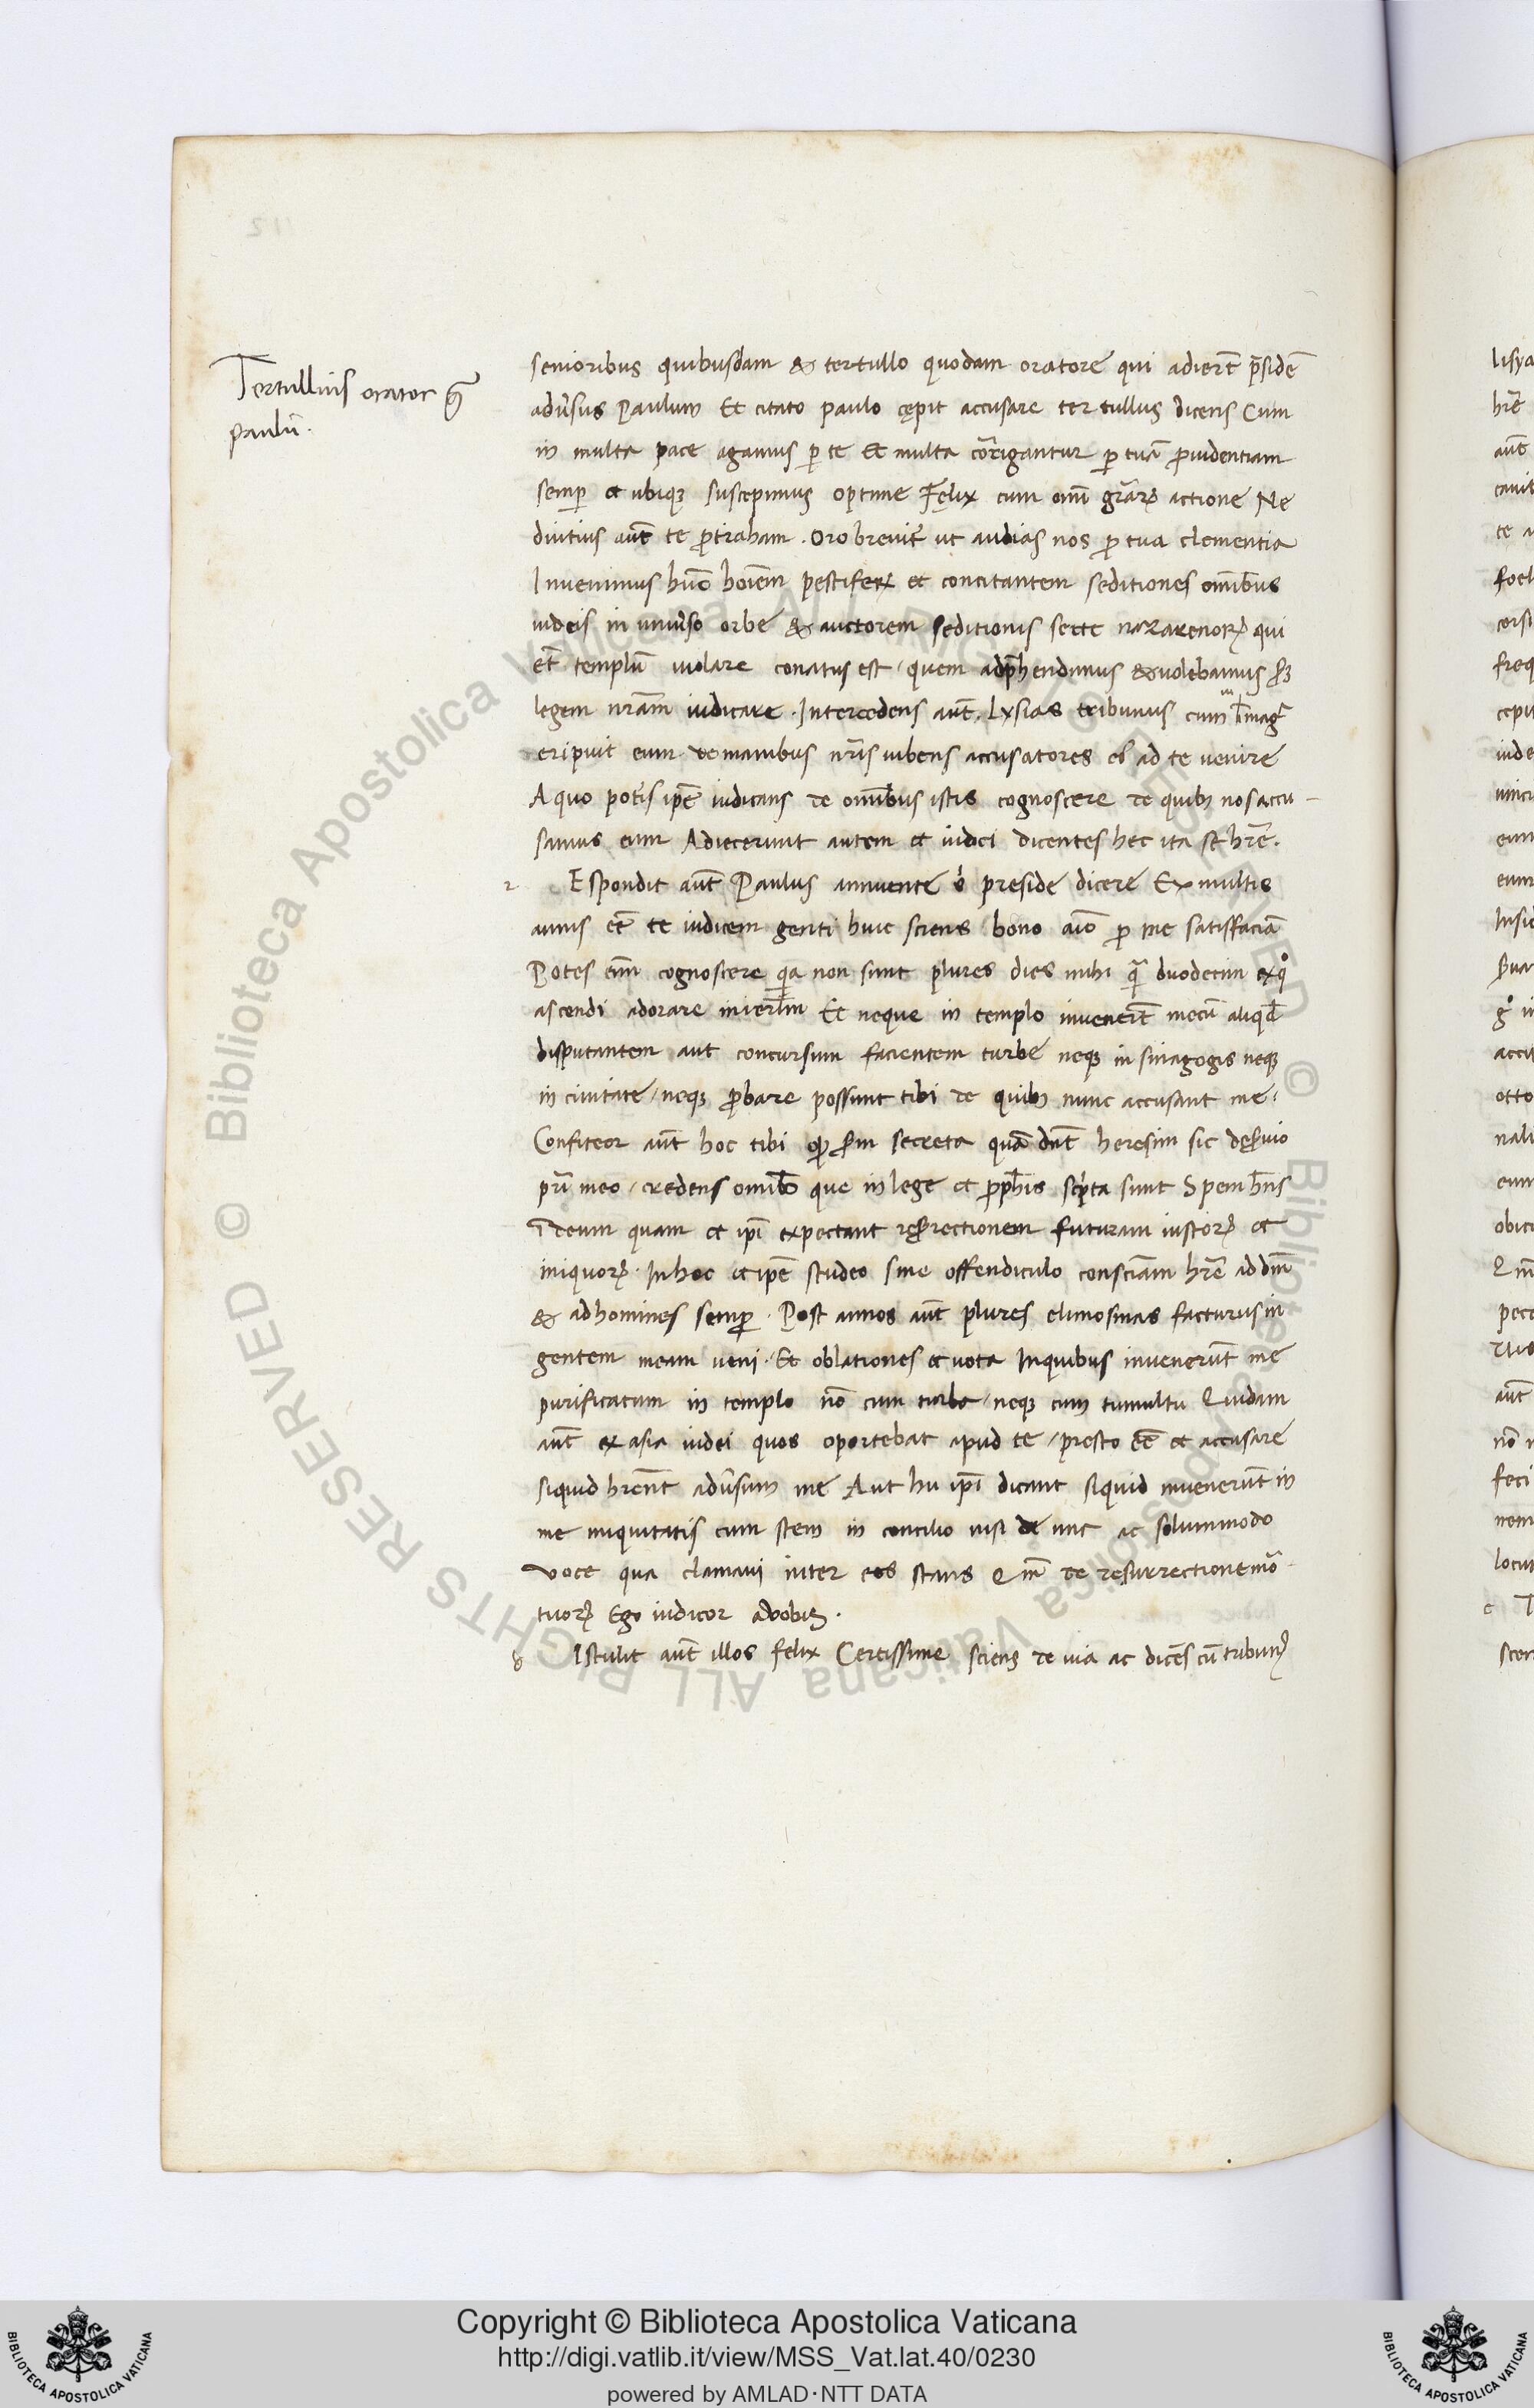 Tertullius orator g̃
paulū.
senioribus quibusdam & tertullo quodam oratore qui adiert̄ p̄sidē
adũsus Paulum Et citato paulo cępit accusare ter tullus dicens Cum
in multa pace agamus ꝑ te Et multa cor̄rigantur ꝑ tuā ꝓuidentiam
semꝑ et ubiqꝫ suscepimus optime Fęlix cum om̄i gr̄aꝝ actione Ne
diutius aūt te ꝓtraham . Oro breuit̃ ut audias nos ꝓ tua clementia
Inuenimus hūc hoīem pestiferꝝ et concitantem seditiones om̄ibus
iudeis in uniũso orbe & auctorem seditionis secte nazarenoꝝ qui
et̄ templū uiolare conatus est / quem adp̄hendimus & uolebamus ẜm
legem nr̄am iudicare . Intercedens aūt . Lysias tribunus cum ui magͣ
eripuit eum de manibus nr̄is iubens accusatores eꝰ ad te uenire
A quo potis̃ ip̄e iudicans de om̄ibus istis cognoscere de quibꝫ nos accu-
samus eum Adiecerunt autem et iudei dicentes hec ita se hr̄e .
2 Espondit aūt Paulus annuente ẻ preside dicere Ex multis
annis eē te iudicem genti huic sciens / bono aīo ꝓ me satisfaciā
Potes em̄ cognoscere qͣa non sunt plures dies mihi qͣ duodecim ex qͦ
ascendi adorare in ierl̄m Et neque in templo inuenert̄ mecū aliqd̄
disputantem aut concursum facientem turbe neqꝫ in sinagogis neqꝫ
in ciuitate / neqꝫ ꝓbare possunt tibi de quibꝫ nunc accusant me /
Confiteor aūt hoc tibi qꝫ ẜm secreta quā dn̄t heresim sic deẜuio
pr̄i meo / credens omib̄ que in lege et ꝓph̄is scp̃ta sunt Spem hn̄s
ī deum quam et ip̄i expectant resr̄rectionem futuram iustoꝝ et
iniquoꝝ . In hoc et ip̄e studeo sine offendiculo consciam̄ hr̄e ad dm̄
& ad homines semꝑ . Post annos aūt plures elimosinas facturus in
gentem meam ueni . Et oblationes et uota In quibus inuenerūt me
purificatum in templo nō cum turba / neqꝫ cum tumultu Quidam
aūt ex asia iudei quos oportebat apud te / presto eē et accusare
siquid hrēnt adũsum me Aut hii ip̄i dicant siquid inuenerūt in
me iniquitatis cum stem in concilio nisi de unc ac solummodo
voce qua clamaui inter eos stans Qm̄ de resurrectione mõ
tuoꝝ Ego iudicor a uobis .
Istulit aūt illos felix Certissime sciens de uia ac dicēs cū tribunꝰ
Copyright © Biblioteca Apostolica Vaticana
http://digi.vatlib.it/view/MSS_Vat.lat.40/0230
powered by AMLAD·NTT DATA